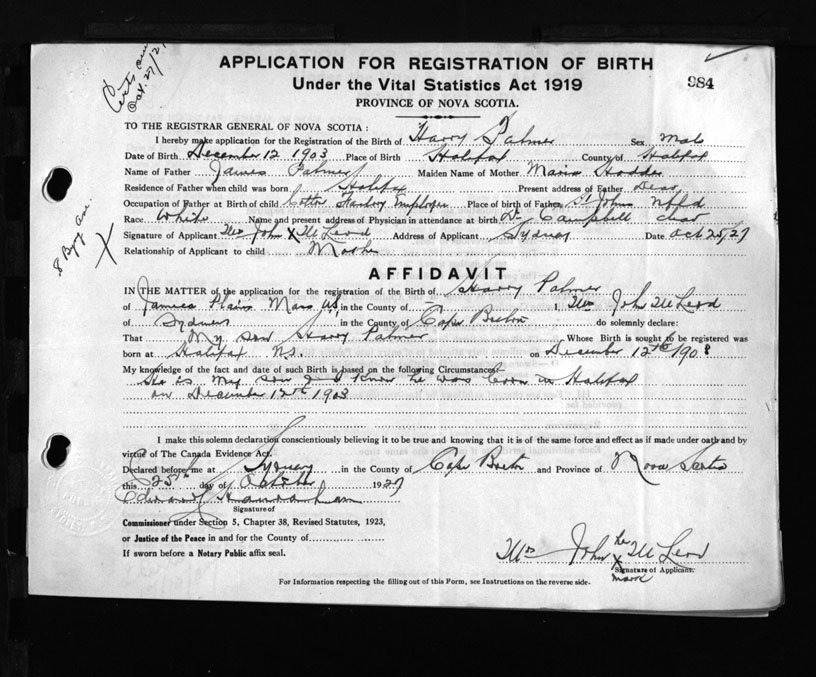 Certs
Oct. 27/27
APPLICATION FOR REGISTRATION OF BIRTH
Under the Vital Statistics Act 1919
984
PROVINCE OF NOVA SCOTIA.
TO THE REGISTRAR GENERAL OF NOVA SCOTIA :
I hereby make application for the Registration of the Birth of Harry Palmer Sex Male
Date of Birth December 12 1903 Place of Birth Halifax County of Halifax
Name of Father James Palmer Maiden Name of Mother Maria Hodder
Residence of Father when child was born Halifax Present address of Father Dead
Occupation of Father at Birth of child Cotton Factory Employee Place of birth of Father St Johns Nfld
Race White Name and present address of Physician in attendance at birth Dr Campbell
Signature of Applicant Mrs John X McLeod Address of Applicant Sydney Date Oct 25/27
Relationship of Applicant to child Mother
8 Byng Ave
X
AFFIDAVIT
IN THE MATTER of the application for the registration of the Birth of Harry Palmer
of Jamica Plains Mass US in the County of — I, Mrs John McLeod
of Sydney in the County of Cape Breton do solemnly declare:
That My son Harry Palmer Whose Birth is sought to be registered was
born at Halifax N.S. on December 12th 1903
My knowledge of the fact and date of such Birth is based on the following Circumstances
He is My son and I know he was born in Halifax
on December 12th 1903
I make this solemn declaration conscientiously believing it to be true and knowing that it is of the same force and effect as if made under oath and by
virtue of The Canada Evidence Act.
Declared before me at Sydney in the County of Cape Breton and Province of Nova Scotia
this 25th day of October 1927
Signature of
Commissioner under Section 5, Chapter 38, Revised Statutes, 1923,
or Justice of the Peace in and for the County of
If sworn before a Notary Public affix seal.
Mrs John her X McLeod
Signature of Applicant.
mark
For Information respecting the filling out of this Form, see Instructions on the reverse side.